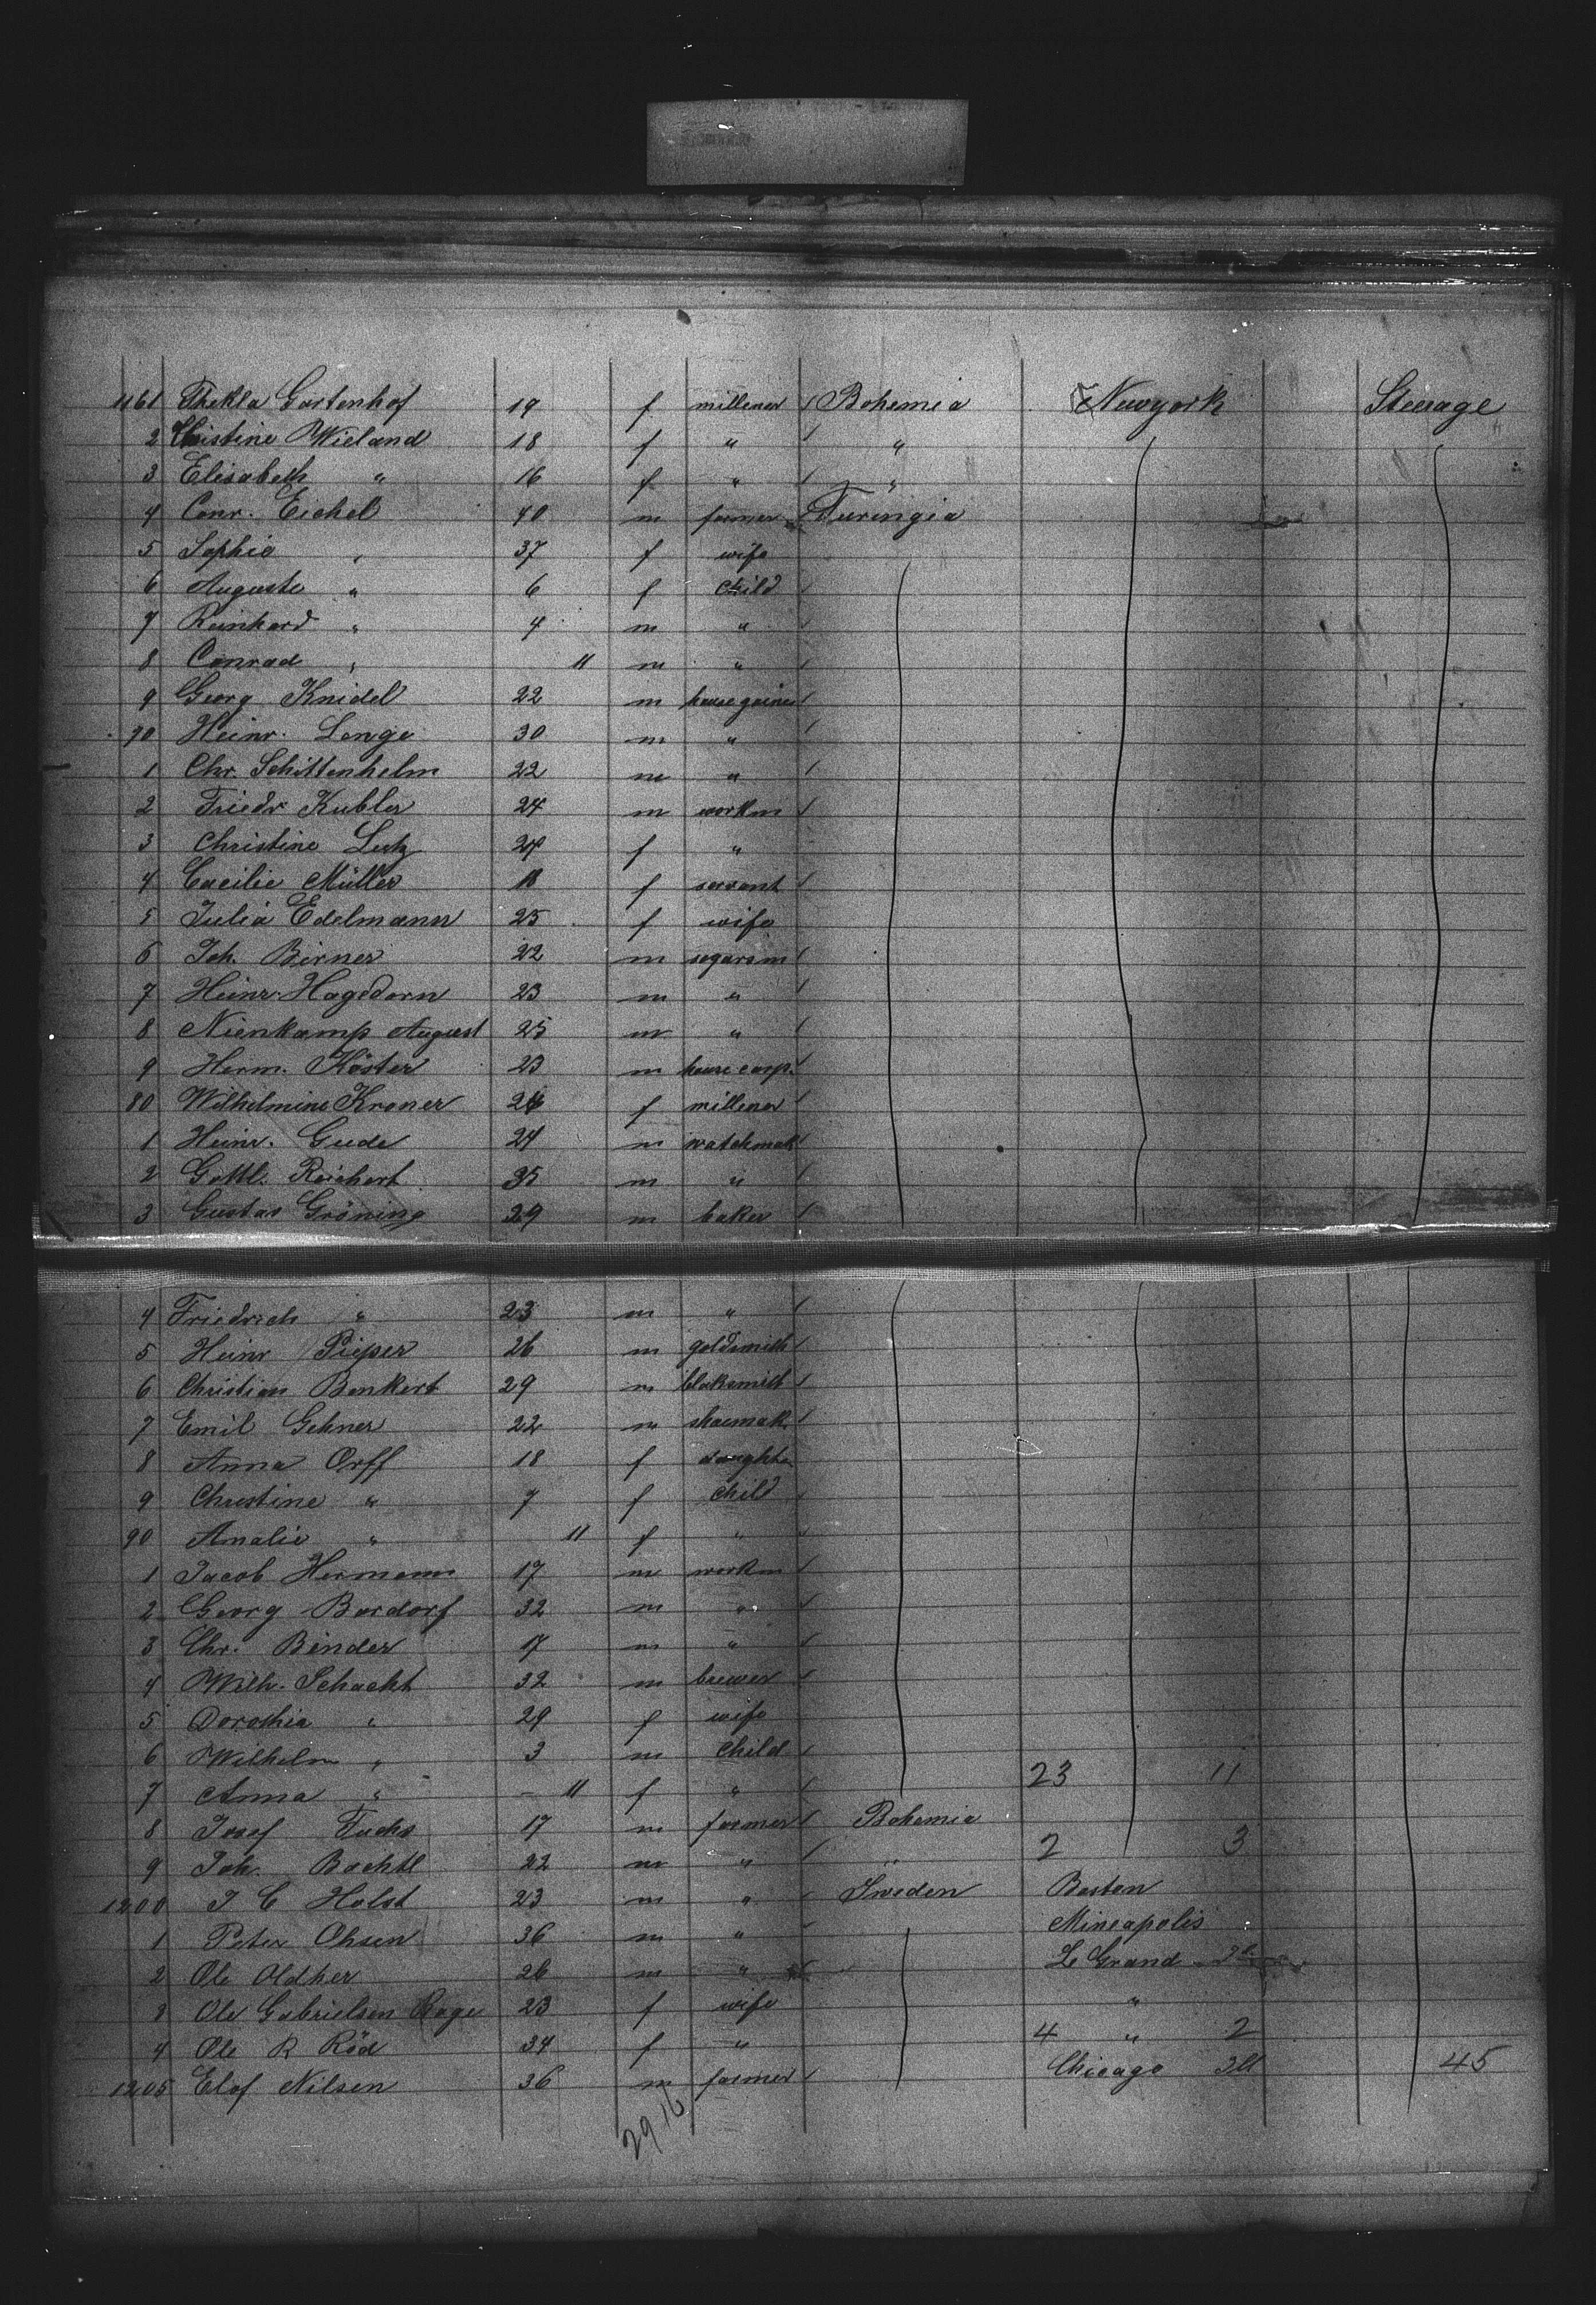 1161 Thekla Gartenhof 19 f millener Bohemia Newyork Steerage
2 Christine Wieland 18 f " "
3 Elisabeth " 16 f " "
4 Conr. Eichel 40 m farmer Turingia
5 Sophie " 37 f wife
6 Auguste " 6 f child
7 Reinhard " 4 m "
8 Conrad " 11 m "
9 Georg Knidel 22 m
70 Heinr. Lange 30 m "
1 Chr. Schittenhelm 22 m "
2 Friedr Kubler 24 m workm
3 Christine Lutz 24 f "
4 Cacilie Müller 18 f servant
5 Julia Edelmann 25 f wife
6 Joh. Birner 22 m segarsm
7 Heinr. Hagedorn 23 m "
8 Nienkamp August 25 m "
9 Herm. Köster 23 m house carp.
80 Wilhelmine Kroner 26 f millener
1 Heinr. Gude 24 m watchmak
2 Gottl. Reichert 35 m "
3 Gustav Gröning 29 m baker
4 Friedrich " 23 m "
5 Heinr Pieper 26 m goldsmith
6 Christian Benkert 29 m blaksmith
7 Emil Gehner 22 m shoemak.
8 Anna Orff 18 f daughter
9 Christine " 7 f child
90 Amalie " 11 f "
1 Jacob Hermann 17 m workm
2 Georg Bardorf 32 m "
3 Chr. Binder 17 m "
4 Wilh. Schacht 32 m brewer
5 Dorothia " 29 f wife
6 Wilhelm " 3 m child
7 Anna " - 11 f " 23 11
8 Josef Fuchs 17 m farmer Bohemia
9 Joh. Bachtl 22 m " " 2 3
1200 J C Holst 23 m " Sweden Boston
1 Peter Ohsen 36 m " Mineapolis
2 Ole Oldher 26 m " Le Grand
3 Ole Gabrielsen 23 f wife "
4 Ole R Röd 34 f " 4 " 2
1205 Elof Nilsen 36 m farmer Chicago Ill 45
29 16